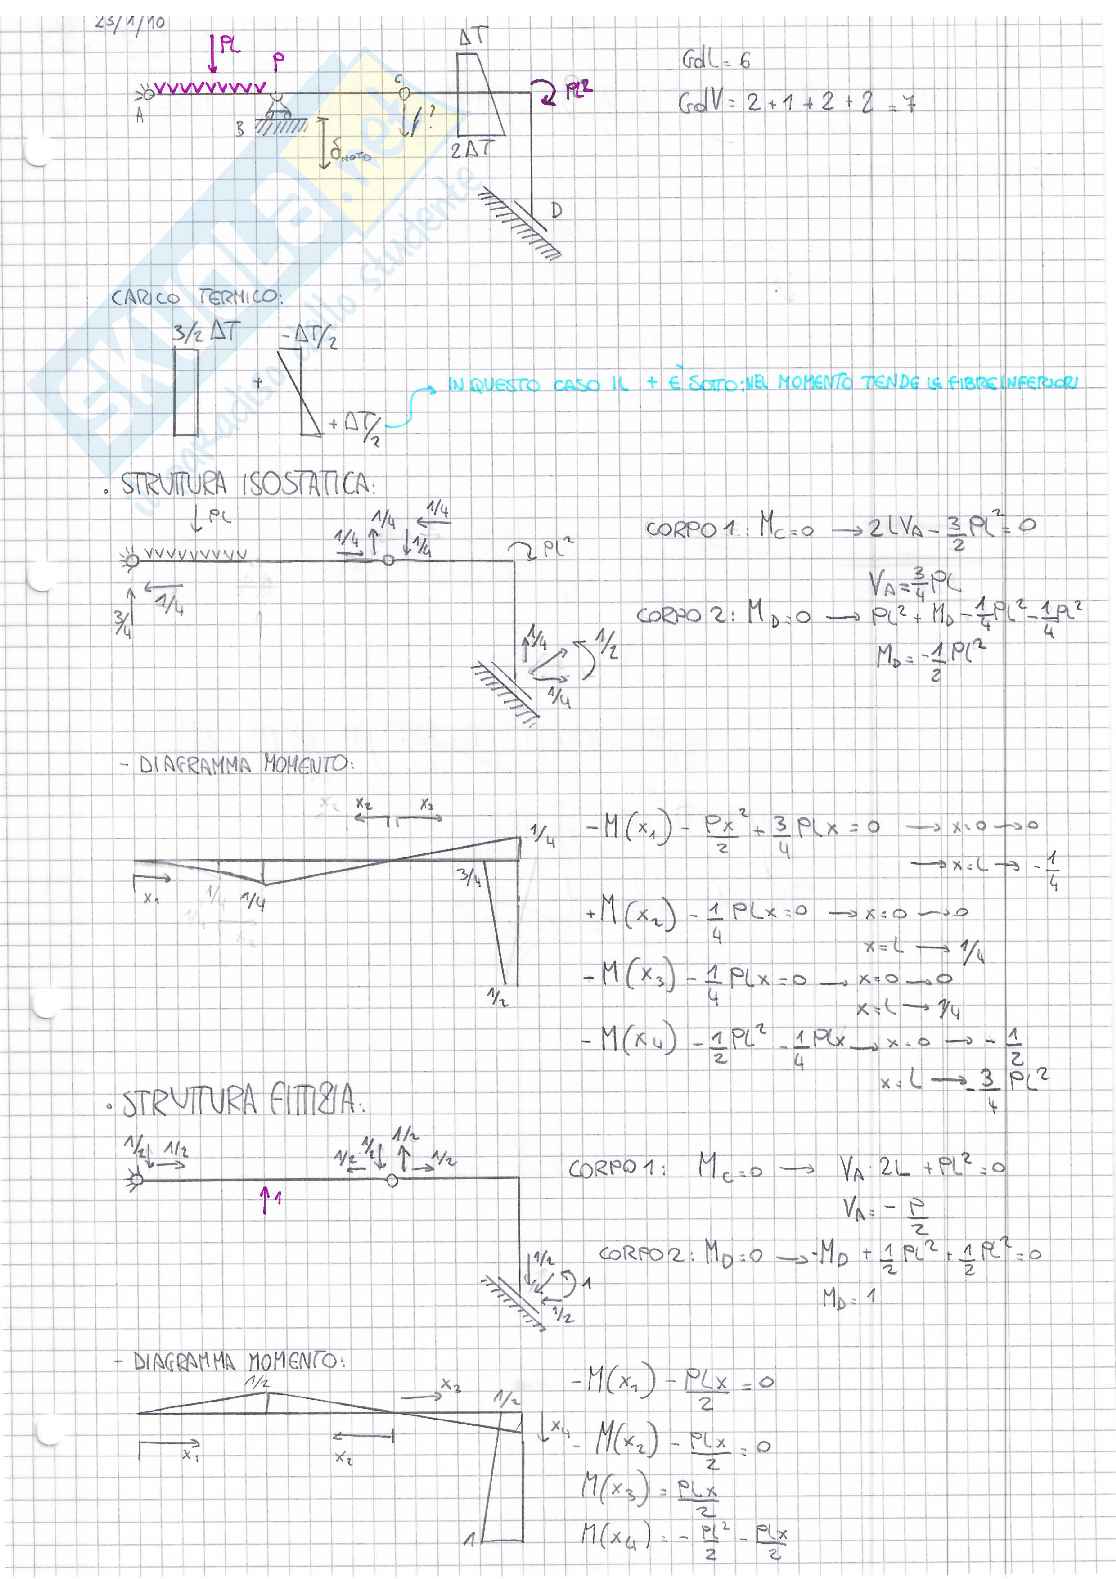 25/1/10
PL
P
ΔT
C
PL²
A
B
?
δ_NOTO
2ΔT
D
GdL = 6
GdV = 2+1+2+2 = 7
CARICO TERMICO:
3/2 ΔT
-ΔT/2
+
+ΔT/2
IN QUESTO CASO IL + È SOTTO: NEL MOMENTO TENDE LE FIBRE INFERIORI
• STRUTTURA ISOSTATICA:
PL
1/4
1/4
1/4
1/4
PL²
3/4
1/4
1/4
1/2
1/4
CORPO 1: M_C=0 → 2LV_A - 3/2 PL² = 0
V_A = 3/4 PL
CORPO 2: M_D=0 → PL² + M_D - 1/4 PL² - 1/4 PL²
M_D = -1/2 PL²
- DIAGRAMMA MOMENTO:
x₂
x₃
1/4
x₁
1/4
1/4
3/4
1/2
-M(x₁) - Px²/2 + 3/4 PLx = 0 → x=0 → 0
→ x=L → -1/4
+M(x₂) - 1/4 PLx = 0 → x=0 → 0
x=L → 1/4
-M(x₃) - 1/4 PLx = 0 → x=0 → 0
x=L → 1/4
-M(x₄) - 1/2 PL² - 1/4 PLx → x=0 → -1/2
x=L → -3/4 PL²
• STRUTTURA FITTIZIA:
1/2
1/2
1/2
1/2
1/2
1/2
1
1/2
1
1/2
CORPO 1: M_C=0 → V_A·2L + PL² = 0
V_A = -P/2
CORPO 2: M_D=0 → -M_D + 1/2 PL² + 1/2 PL² = 0
M_D = 1
- DIAGRAMMA MOMENTO:
1/2
x₃
1/2
x₄
x₁
x₂
1
-M(x₁) - PLx/2 = 0
-M(x₂) - PLx/2 = 0
M(x₃) = PLx/2
M(x₄) = -PL²/2 - PLx/2
SKUOLA.net